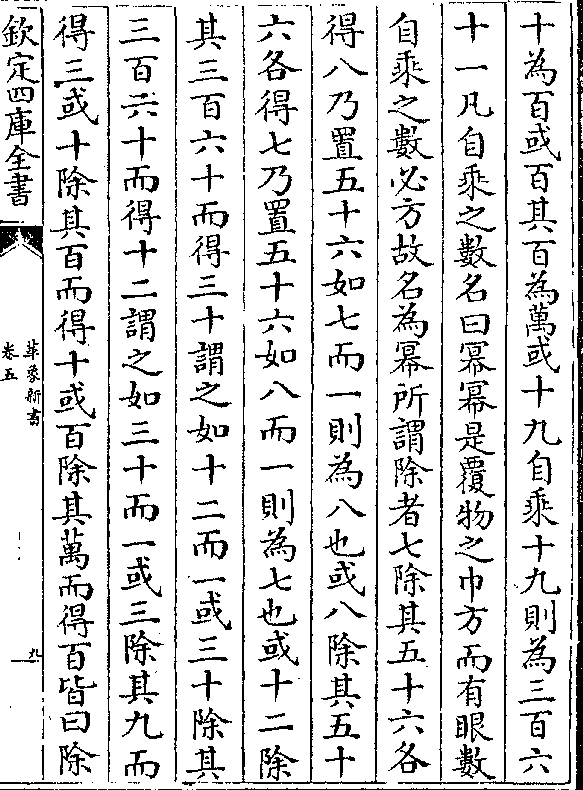 十為百或百其百為萬或十九自乘十九則為三百六
十一凡自乘之數名曰冪冪是覆物之巾方而有眼數
自乘之數必方故名為冪所謂除者七除其五十六各
得八乃置五十六如七而一則為八也或八除其五十
六各得七乃置五十六如八而一則為七也或十二除
其三百六十而得三十謂之如十二而一或三十除其
三百六十而得十二謂之如三十而一或三除其九而
得三或十除其百而得十或百除其萬而得百皆曰除
欽定四庫全書
革象新書
卷五
九